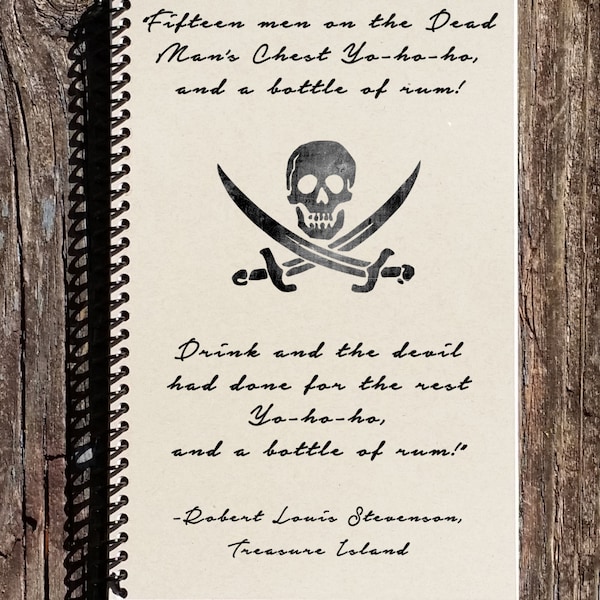 "Fifteen men on the Dead
Man's Chest Yo-ho-ho,
and a bottle of rum!
Drink and the devil
had done for the rest
Yo-ho-ho,
and a bottle of rum!"
-Robert Louis Stevenson,
Treasure Island